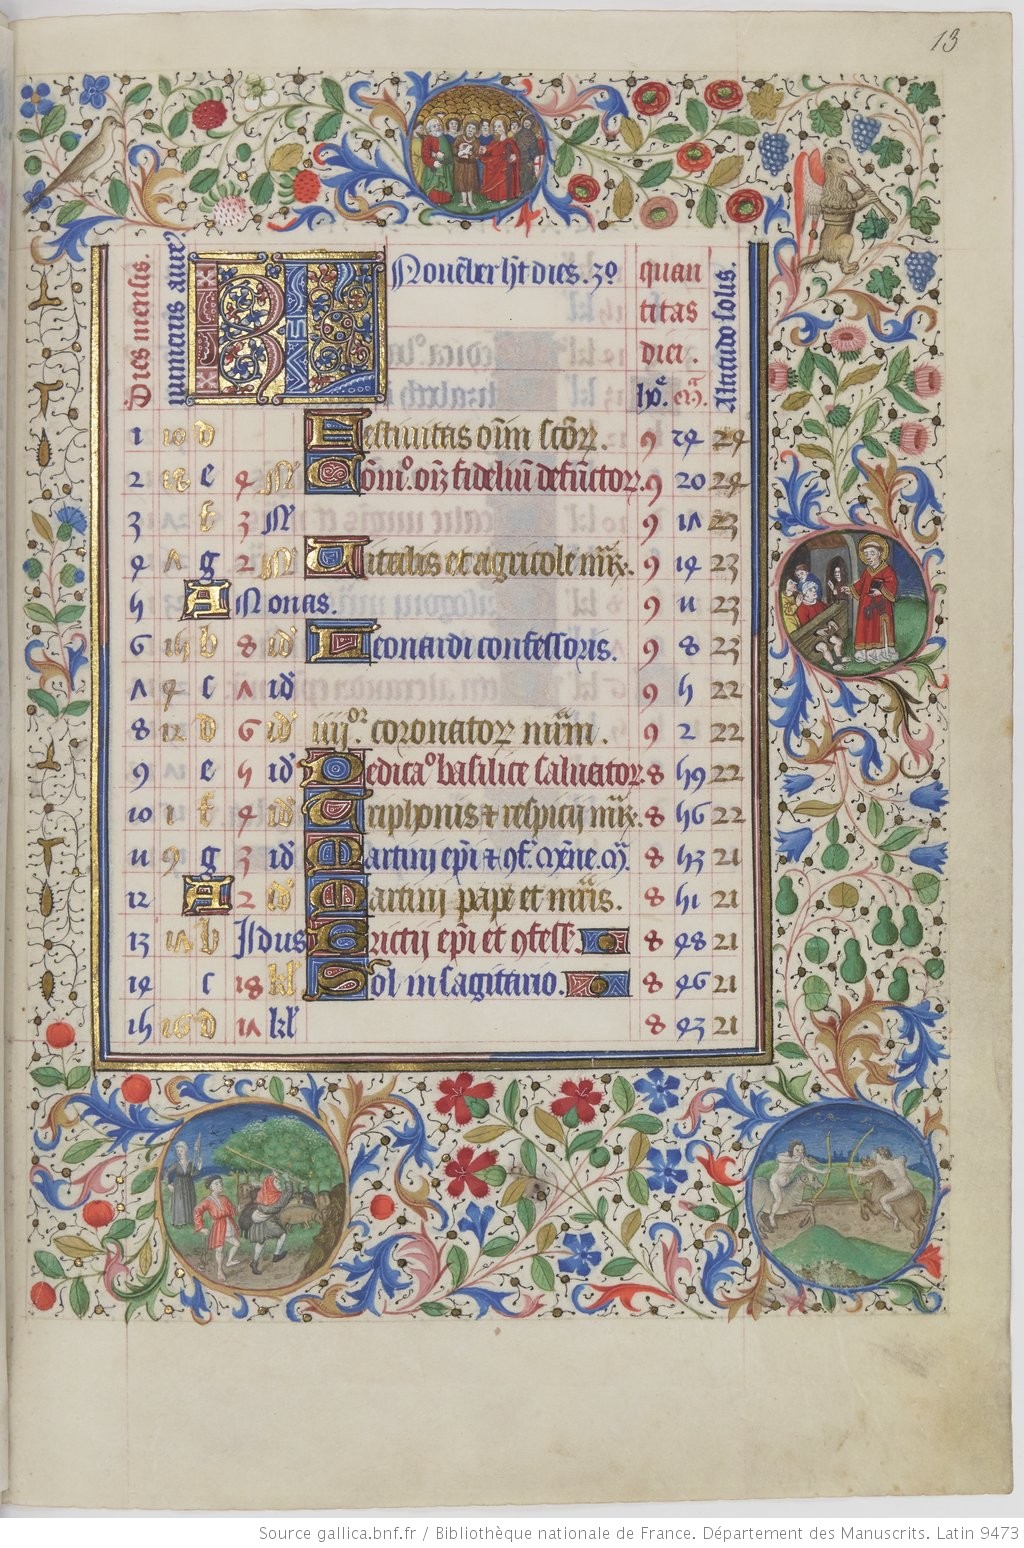 13
Dies mensis.
numerus aure9
KL
Nouēber hʼt dies. 30
quan
titas
diei.
ho͛. em̄.
Altitudo solis.
1 10 d Festiuitas om̄ sc̄oꝝ 9 24 24
2 18 e 4 N Com̄o. om̄ fidelium defūctor. 9 20 24
3 f 3 N 9 17 23
4 7 g 2 N Uitalis et agricole mr̄. 9 14 23
5 A Nonas. 9 11 23
6 15 b 8 id Leonardi confessoris. 9 8 23
7 4 c 7 id 9 5 22
8 12 d 6 id iiijor. coronatoꝝ mr̄m. 9 2 22
9 e 5 id Dedicao basilice saluatoꝝ 8 59 22
10 1 f 4 id Triphonis ⁊ respicij mr̄. 8 56 22
11 9 g 3 id Martini ep̄i ⁊ 9f. 8 53 21
12 A 2 id Martini pape et mr̄is. 8 51 21
13 17 b Jdus Brictij ep̄i et 9fess. 8 48 21
14 c 18 kl Sol in sagitario. 8 46 21
15 16 d 17 kl 8 43 21
Source gallica.bnf.fr / Bibliothèque nationale de France. Département des Manuscrits. Latin 9473